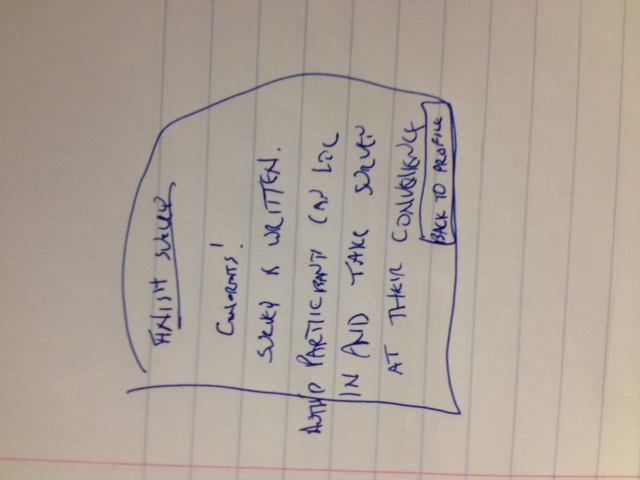 FINISH SURVEY
CONGRATS!
SURVEY IS WRITTEN.
AUTH'D PARTICIPANT CAN LOG
IN AND TAKE SURVEY
AT THEIR CONVENIENCE
BACK TO PROFILE